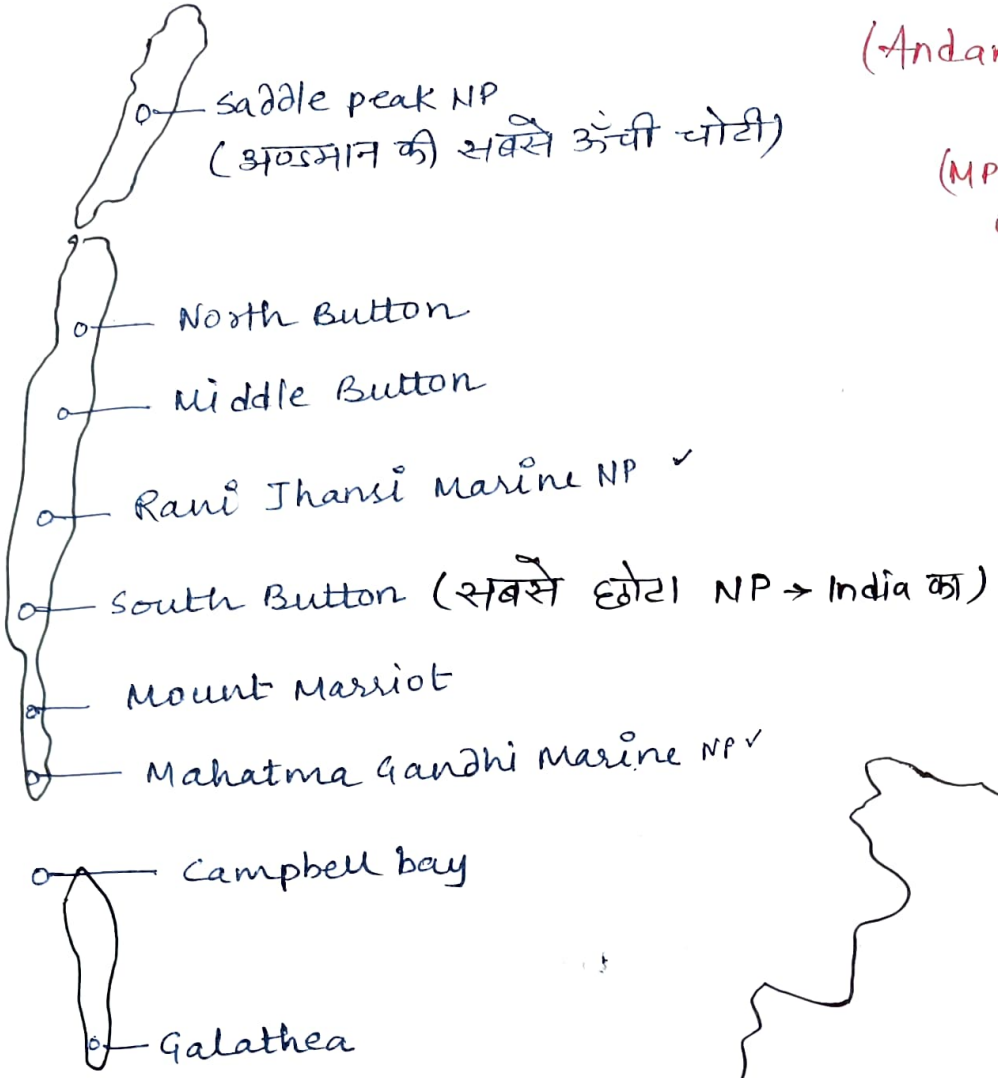 (Andar
saddle peak NP
(अण्डमान की सबसे ऊँची चोटी)
(MP
North Button
Middle Button
Rani Jhansi Marine NP ✓
South Button (सबसे छोटा NP → India का)
Mount Marriot
Mahatma Gandhi Marine NP ✓
Campbell bay
Galathea